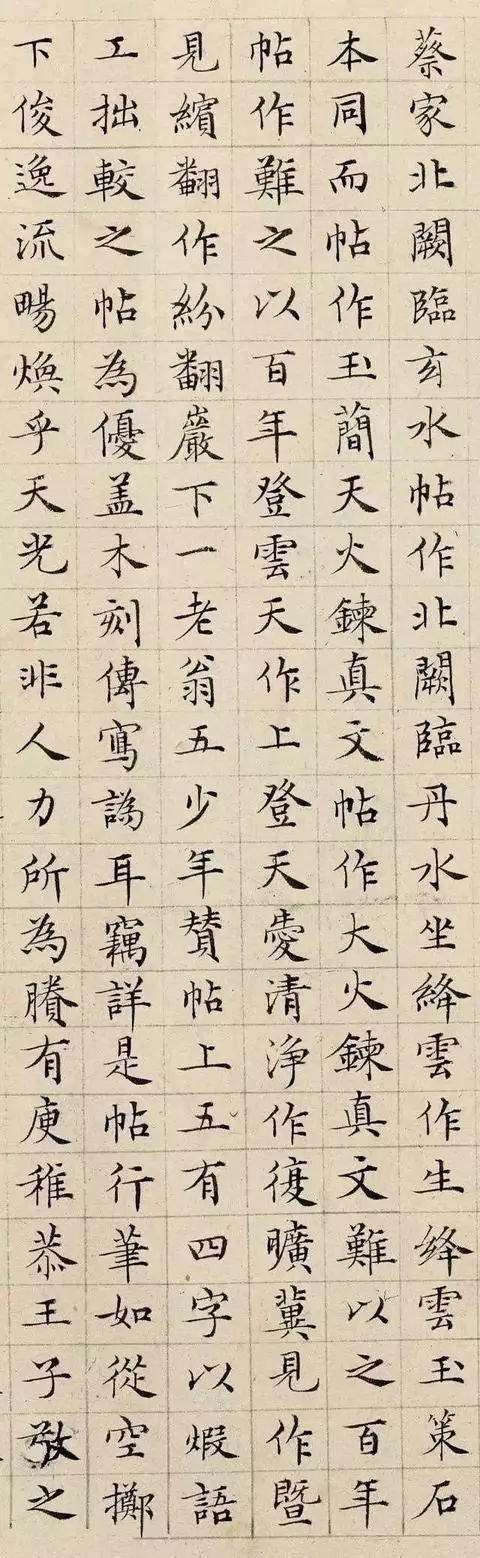 蔡家北闕臨玄水帖作北闕臨丹水坐絳雲作生絳雲玉策石
本同而帖作玉蕳天火鍊真文帖作大火鍊真文難以之百年
帖作難之以百年登雲天作上登天愛清浄作復曠冀見作暨
見繽翻作紛翻巖下一老翁五少年贊帖上五有四字以煆語
工拙較之帖為優盖木刻傳寫譌耳竊詳是帖行筆如從空擲
下俊逸流暢煥乎天光若非人力所為賸有庾稚恭王子敬之